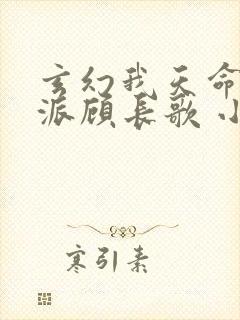 玄幻我天命
派顾长歌小
寒引素